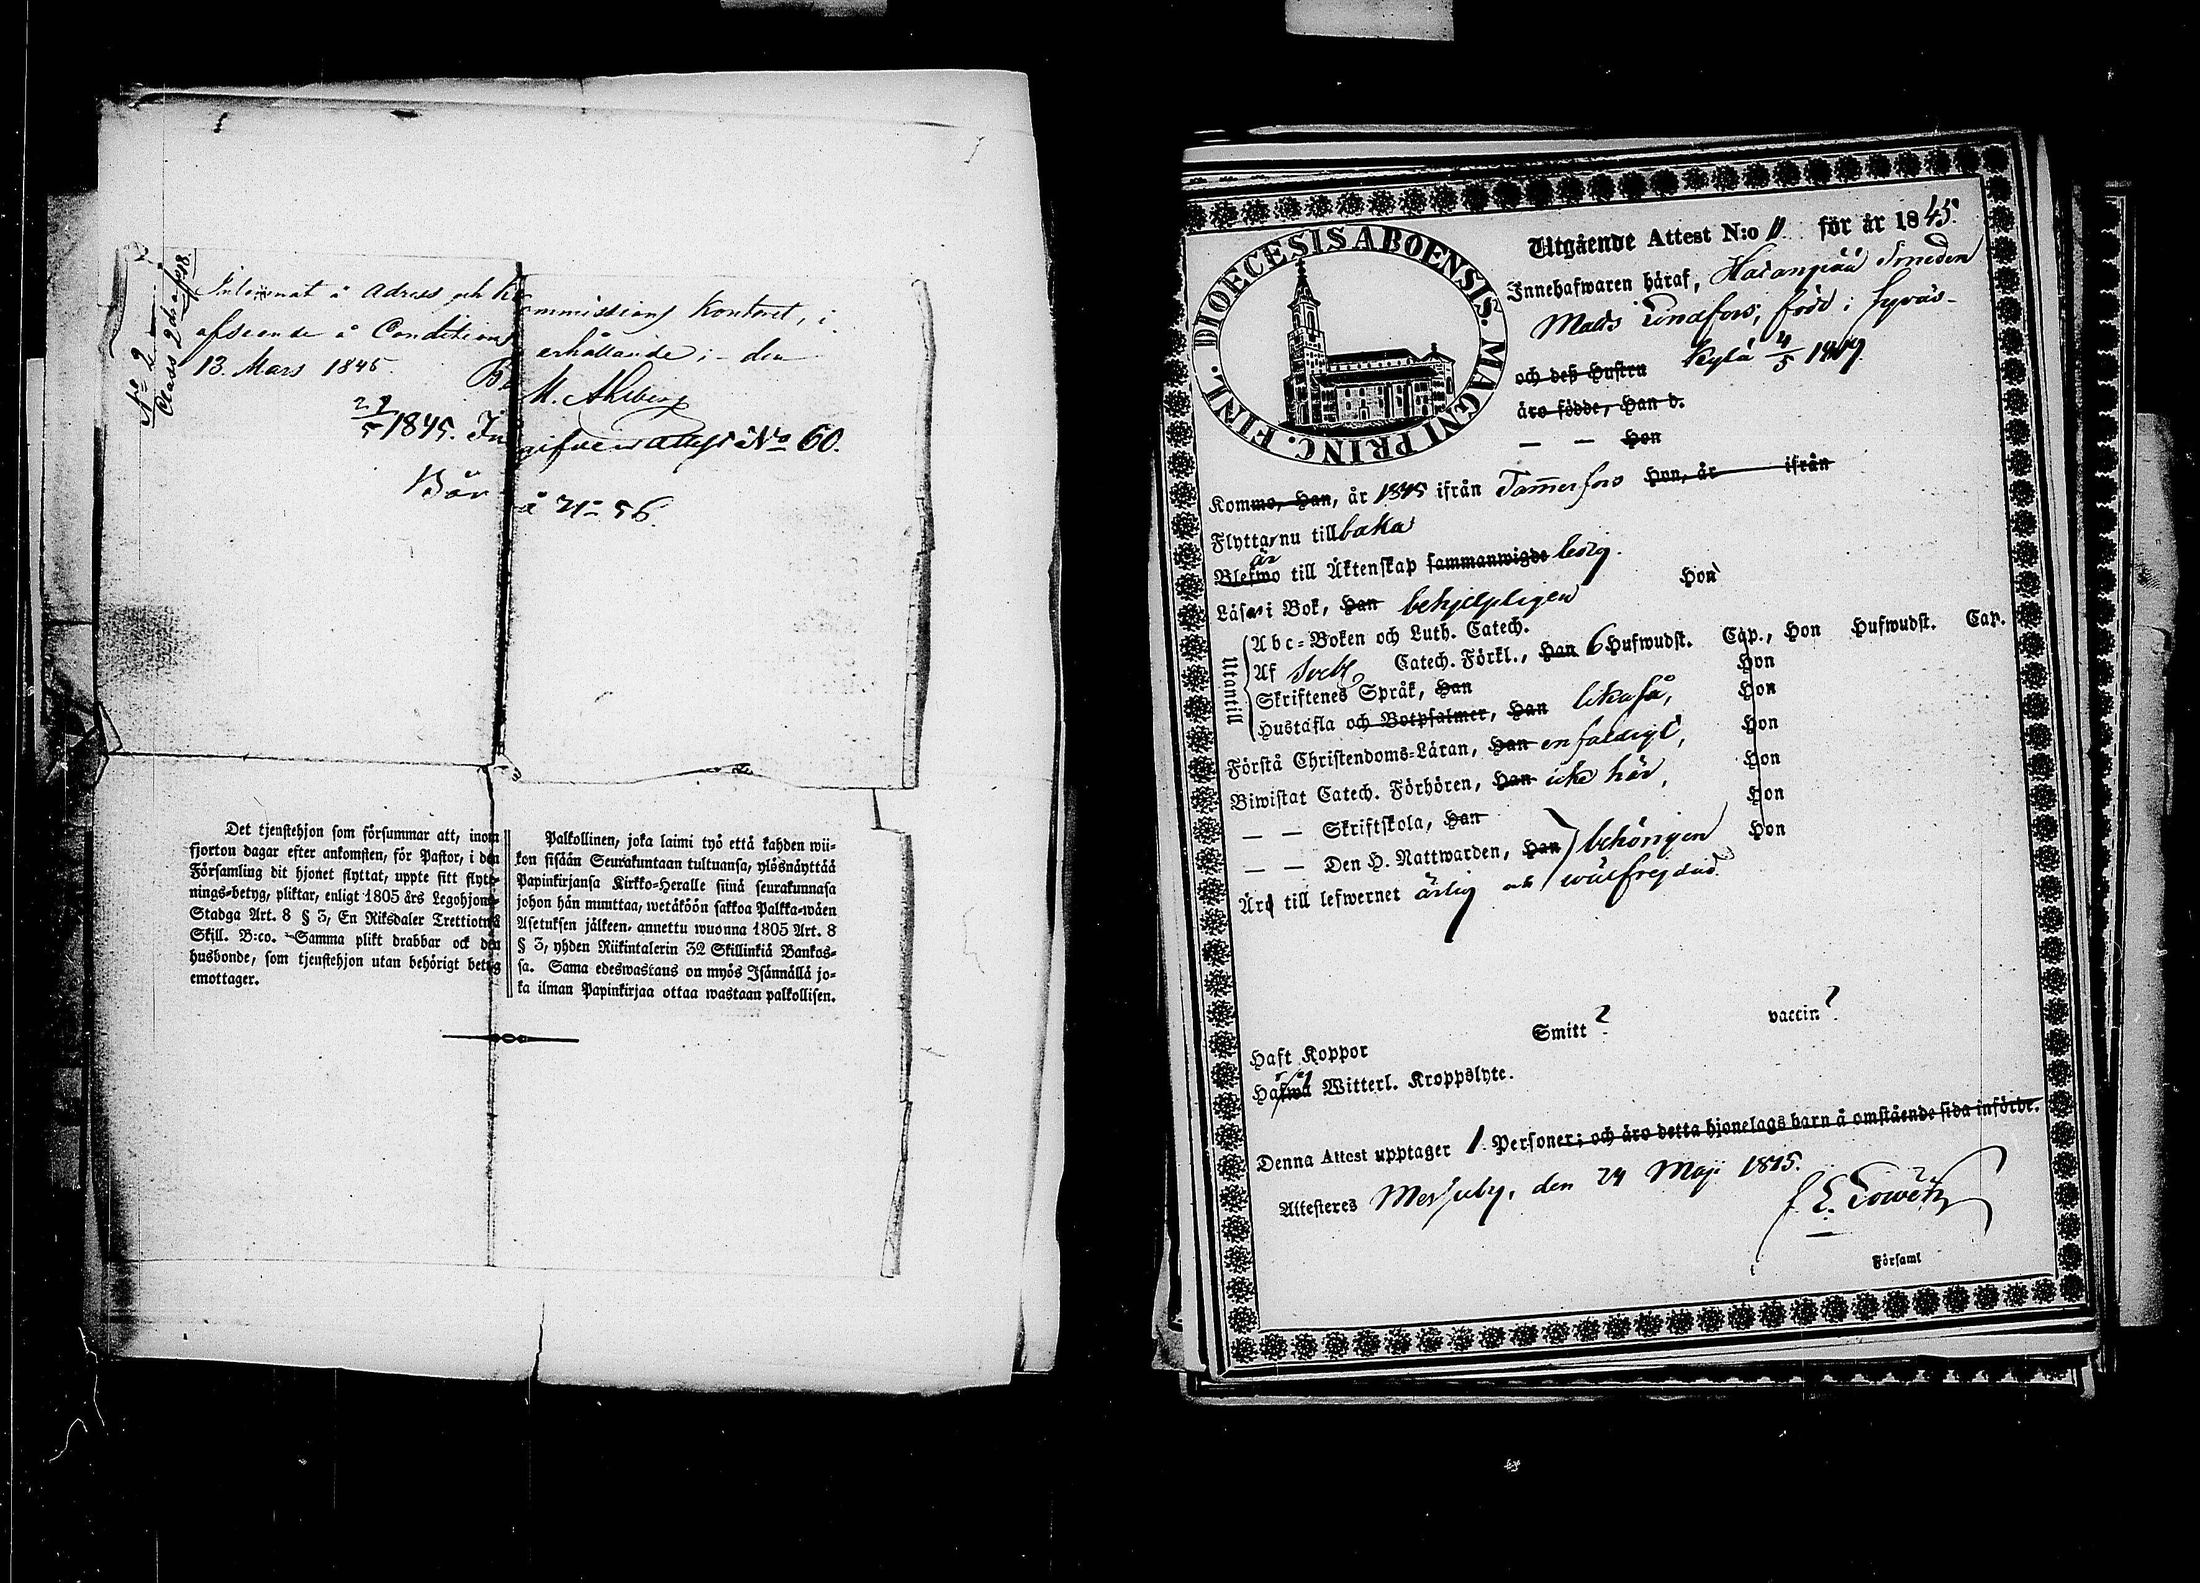 N:o 2
Class 2dra p. 18.
Inlemnat å Adress och Commissions Kontoret, i
afseende å Conditions erhållande i den
13 Mars 1845.
M. Ahlberg
21/5 1845. Ingifven attest No 60.
Bör å No 56.
Det tjenstehjon som försummar att, inom
fjorton dagar efter ankomsten, för Pastor, i den
Församling dit hjonet flyttat, uppte sitt flytt-
nings-betyg, pliktar, enligt 1805 års Legohjons-
Stadga Art. 8 § 3, En Riksdaler Trettiotwå
Skill. B:co. Samma plikt drabbar ock den
husbonde, som tjenstehjon utan behörigt betyg
emottager.
Palkollinen, joka laimi työ että kahden wii-
kon sisään Seurakuntaan tultuansa, ylösnäyttää
Papinkirjansa Kirkko-Heralle siinä seurakunnasa
johon hän muuttaa, wetäköön sakkoa Palkka-wäen
Asetuksen jälkeen, annettu wuonna 1805 Art. 8
§ 3, yhden Riikintalerin 32 Skillinkiä Bankos-
sa. Sama edeswastaus on myös Isännällä jo-
ka ilman Papinkirjaa ottaa wastaan palkollisen.
DIOECESIS ABOENSIS. MAGNI PRINC. FINL.
Utgående Attest N:o 11 för år 1845.
Innehafwaren häraf, Smeden
Mats Lindfors, född i Jyväs-
och deß Hustru kylä 4/5
äro födde, Han d.
— — Hon
Kommo, Han, år 1845 ifrån Tammerfors Hon, år ifrån
Flytta nu tillbaka
är
Blefwo till Äktenskap sammanwigde ledig.
Läsa i Bok, Han behjelpligen Hon
Utantill
Abc-Boken och Luth. Catech.
Af Sveb. Catech. Förkl., Han 6 Hufwudst. Cap., Hon Hufwudst. Cap.
Skriftenes Språk, Han Hon
Hustafla och Botpsalmer, Han likaså, Hon
Förstå Christendoms-Läran, Han enfaldigt, Hon
Biwistat Catech. Förhören, Han icke här, Hon
— — Skriftskola, Han Hon
— — Den H. Nattwarden, Han behörigen Hon
Äro till lefwernet ärlig och wälfrejdad.
Haft Koppor Smitt ? vaccin ?
Hafwa ej Witterl. Kroppslyte.
Denna Attest upptager 1 Personer; och äro detta hjonelags barn å omstående sida införde.
Attesteres Messuby, den 24 Maji 1845.
Församl